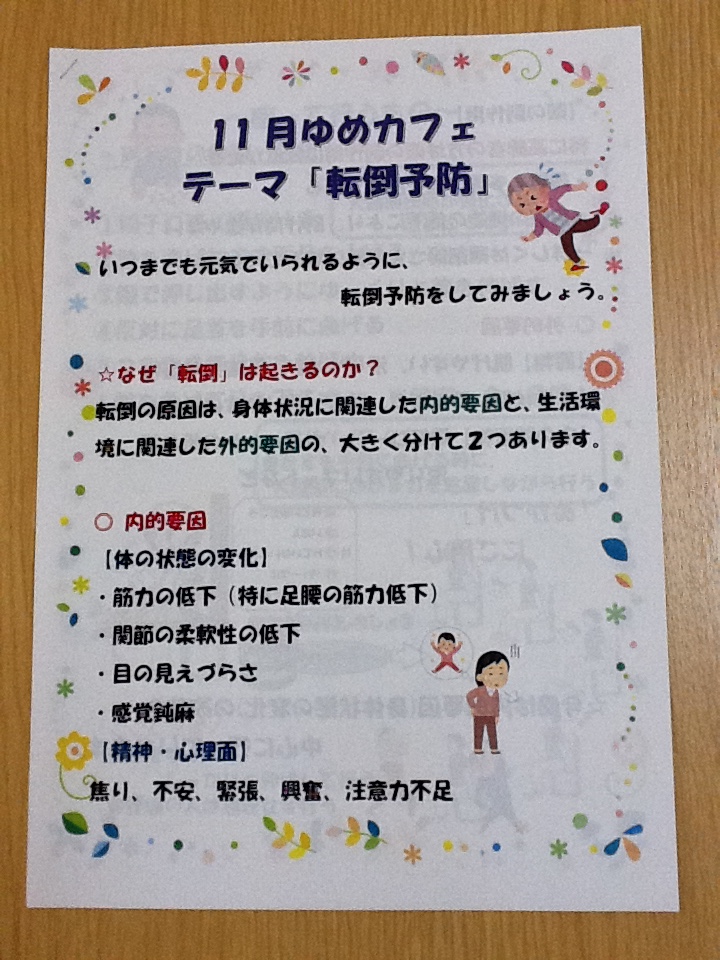 11月ゆめカフェ
テーマ「転倒予防」
いつまでも元気でいられるように、
転倒予防をしてみましょう。
☆なぜ「転倒」は起きるのか？
転倒の原因は、身体状況に関連した内的要因と、生活環
境に関連した外的要因の、大きく分けて２つあります。
○ 内的要因
【体の状態の変化】
・筋力の低下（特に足腰の筋力低下）
・関節の柔軟性の低下
・目の見えづらさ
・感覚鈍麻
【精神・心理面】
焦り、不安、緊張、興奮、注意力不足